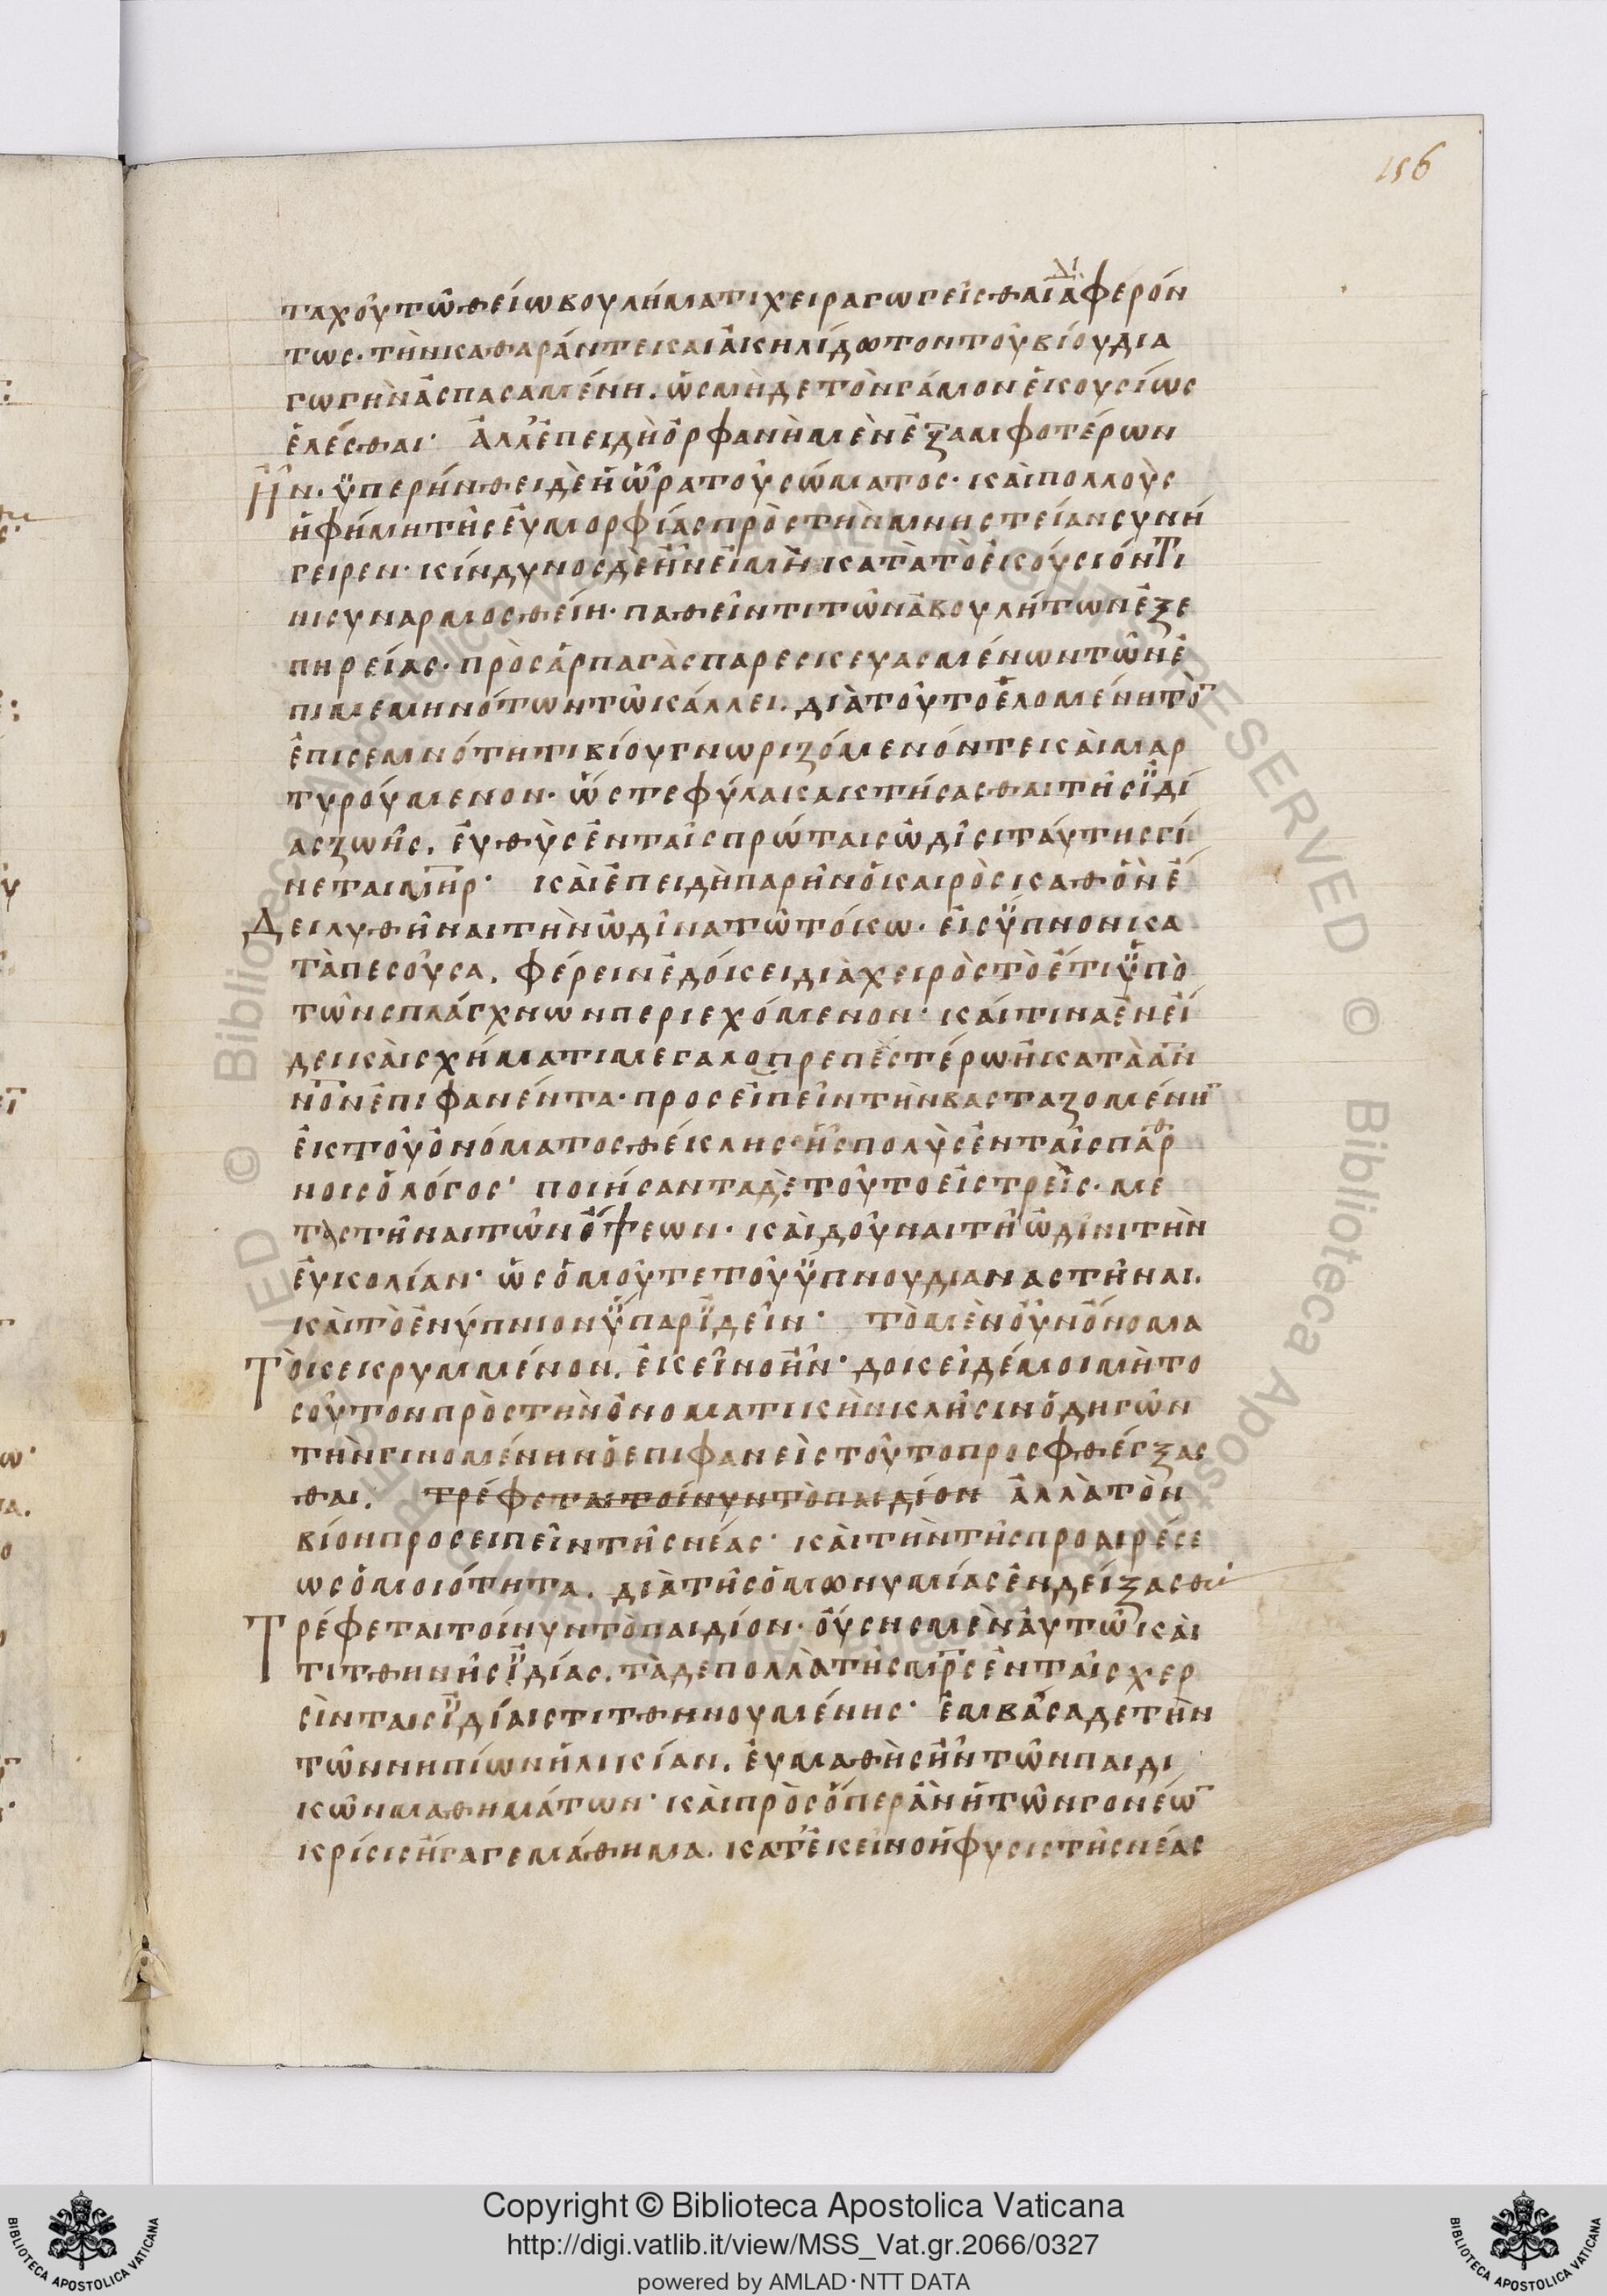 156
ταχοῦ τῷ θείω βουλήματι χειραγωγεῖσθαι διαφερόν
τως· τὴν καθαράν τε καὶ ἀκηλίδωτον τοῦ βίου δια
γωγὴν ἀσπασαμένη. ὡς μὴ δε τὸν γάμον ἑκουσίως
ἑλέσθαι· ἀλλ' ἐπειδὴ ὀρφανὴ μὲν ἐξ αμφοτέρων
ἦν. ϋπερήνθει δὲ ἡ ὥρα τοῦ σώματος· καὶ πολλοὺς
ἡ φήμη τῆς εὐμορφίας πρὸς τὴν μνηστείαν συνή
γειρεν· κίνδυνος δὲ ἦν εἰ μὴ κατὰ τὸ ἑκούσιόν τι
νι συναρμοσθείη· παθεῖν τι τῶν ἀβουλήτων ἐξ ε
πηρείας· πρὸς ἁρπαγὰς παρεσκευασμένων τῶν ἐ
πιμεμηνότων τῷ κάλλει. διὰ τοῦτο ἑλομένη τὸ ̅
ἐπι σεμνότητι βίου γνωριζόμενόν τε καὶ μαρ
τυρούμενον· ὥστε φύλακα κτήσασθαι τῆς ϊδί
ας ζωῆς. εὐθὺς ἐν ταῖς πρώταις ὠδῖσι ταύτης γί
νεται μ̅η̅ρ̅· καὶ ἐπειδὴ παρῆν ὁ καιρὸς καθ' ὃν ἔ
δει λυθῆναι τὴν ὠδῖνα τῷ τόκω· εἰς ϋπνον κα
τὰπεσοῦσα. φέρειν ἐδόκει διὰ χειρὸς τὸ ἔτι ϋπὸ
τῶν σπλάγχνων περιεχόμενον· καί τινα ἐν εἴ
δει καὶ σχήματι μεγαλοπρεπεστέρω ἢ κατὰ α̅ν̅
ν̅ο̅ν̅ ἐπιφανέντα· προσειπεῖν τὴν βασταζομένη ̅
ἐκ τοῦ ὀνόματος θέκλης· ἧς πολὺς ἐν ταῖς παρ^θ
νοις ὁ λόγος· ποιήσαντα δὲ τοῦτο εἰς τρεῖς. με
ταστῆναι τῶν ὄψεων· καὶ δοῦναι τῇ ὠδῖνι τὴν
εὐκολίαν· ὡς ὁμοῦ τε τοῦ ϋπνου διαναστῆναι.
καὶ τὸ ἐνύπνιον ϋπαρ ϊδεῖν· τὸ μὲν οὖν ὄνομα
τὸ κεκρυμμένον. ἐκεῖνο ἦν· δοκεῖ δέ μοι μὴ το
σοῦτον πρὸς τὴν ὀνοματικὴν κλῆσιν ὁδηγῶν
τὴν γινομένην ὁ επιφανεὶς τοῦτο προσφθέγξασ
θαι. τρέφεται τοίνυν τὸ παιδίον ἀλλὰ τὸν
βίον προσειπεῖν τῆς νέας· καὶ τὴν τῆς προαιρέσε
ως ὁμοιότητα. διὰ τῆς ὁμωνυμίας ἐνδείξασθαι
Τρέφεται τοίνυν τὸ παιδίον· οὔσης μὲν αὐτῷ καὶ
τιτθηνῆς ϊδίας. τὰ δε πολλὰ τῆς μ̅ρ̅ς ἐν ταῖς χερ
σὶν ταις ϊδίαις τιτθηνουμένης· ἐμβᾶσα δε τὴν
τῶν νηπίων ἡλικίαν. εὐμαθὴς ἦν τῶν παιδι
κῶν μαθημάτων· καὶ πρὸς ὅπερ ἂν ἡ τῶν γονέω ̅
κρίσις ἦγαγε μάθημα. κατ' ἐκεῖνο ἡ φυσις τῆς νέας
Copyright © Biblioteca Apostolica Vaticana
http://digi.vatlib.it/view/MSS_Vat.gr.2066/0327
powered by AMLAD·NTT DATA
BIBLIOTECA APOSTOLICA VATICANA
BIBLIOTECA APOSTOLICA VATICANA